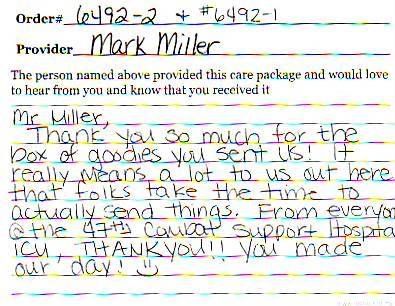 Order# 6492-2 + #6492-1
Provider Mark Miller
The person named above provided this care package and would love
to hear from you and know that you received it
Mr Miller,
Thank you so much for the
box of goodies you sent us! It
really means a lot to us out here
that folks take the time to
actually send things. From everyon
@ the 47th Combat Support Hospita
ICU, THANK you!! You made
our day!